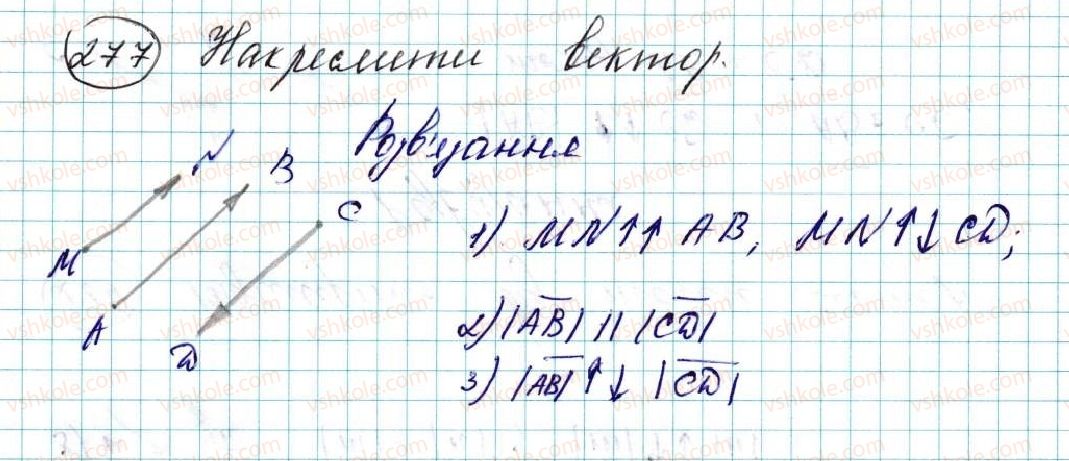 277 Накреслити вектор.
Розв'язання
N B
C
M
A
D
1) MN↑↑ AB, MN↑↓ CD;
2) |AB| || |CD|
3) |AB| ↑↓ |CD|